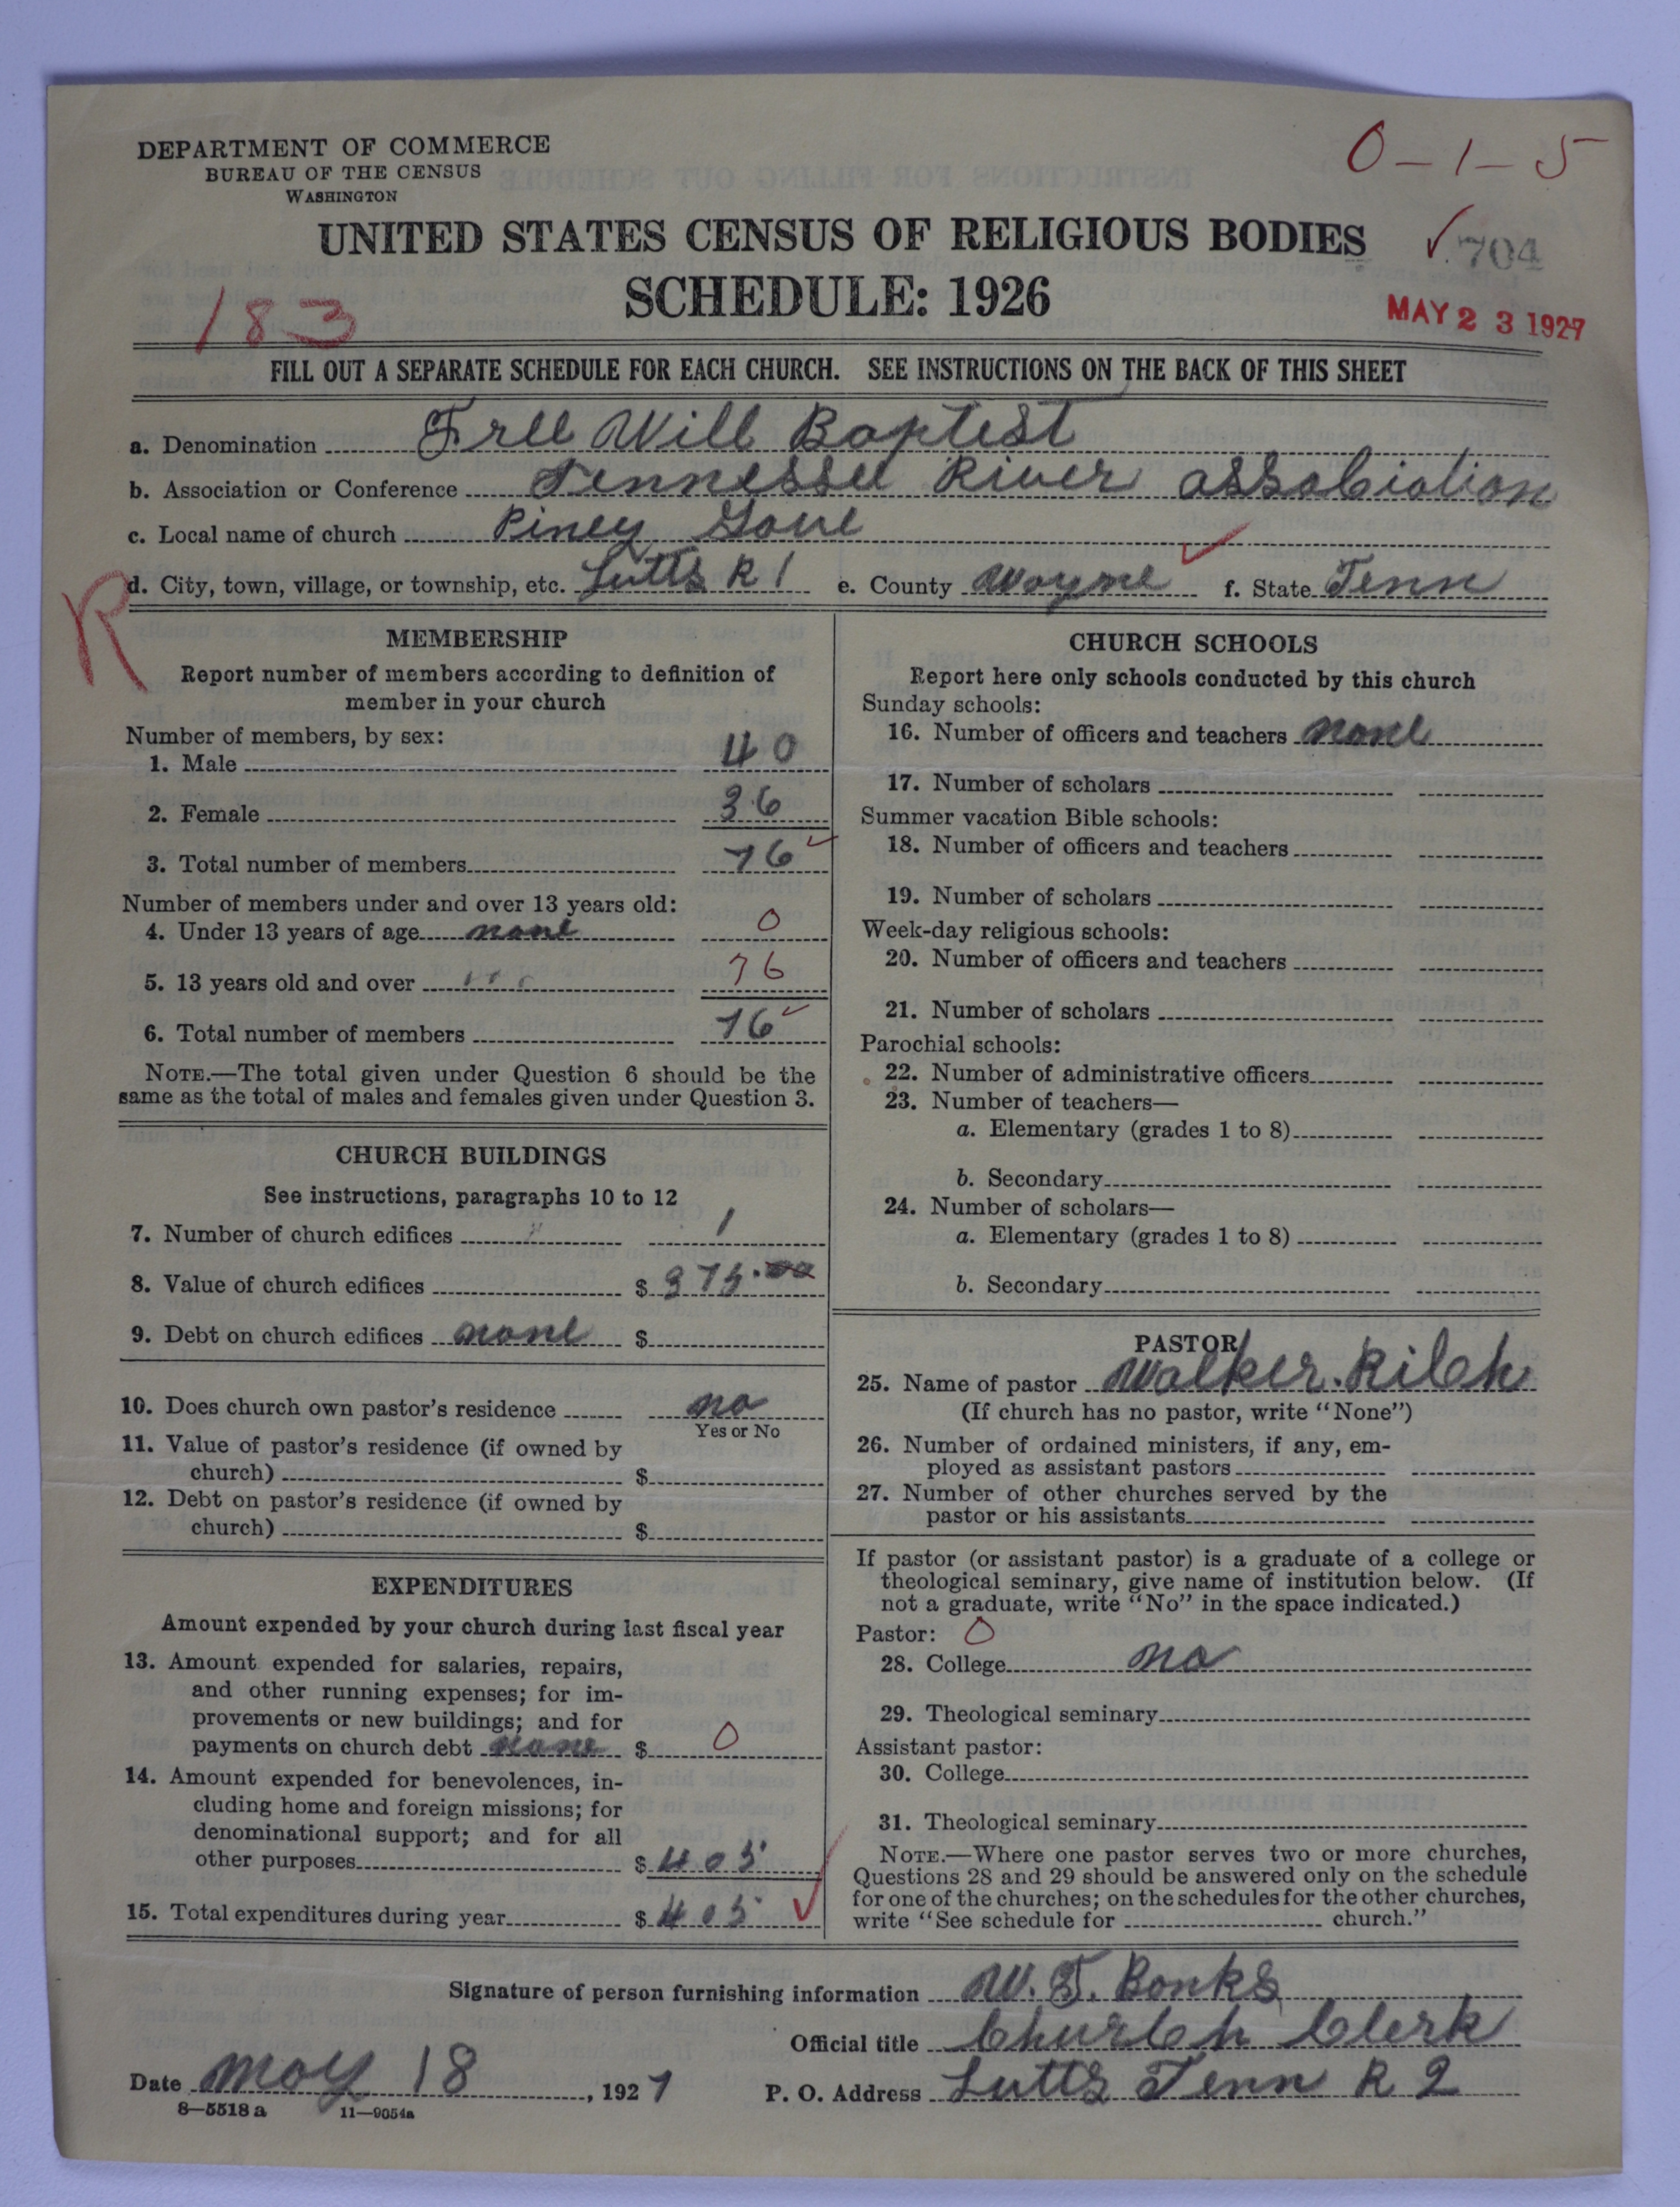 DEPARTMENT OF COMMERCE
BUREAU OF THE CENSUS
WASHINGTON
0-1-5
UNITED STATES CENSUS OF RELIGIOUS BODIES
704
SCHEDULE: 1926
183
MAY 23 1927
FILL OUT A SEPARATE SCHEDULE FOR EACH CHURCH. SEE INSTRUCTIONS ON THE BACK OF THIS SHEET
a. Denomination Free Will Baptist
b. Association or Conference Tennessee River association
c. Local name of church Piney Gove
d. City, town, village, or township, etc. Lutts R 1 e. County Wayne f. State Tenn
R
MEMBERSHIP
Report number of members according to definition of
member in your church
Number of members, by sex:
1. Male 40
2. Female 36
3. Total number of members 76
Number of members under and over 13 years old:
4. Under 13 years of age none 0
5. 13 years old and over 76
6. Total number of members 76
NOTE.—The total given under Question 6 should be the
same as the total of males and females given under Question 3.
CHURCH BUILDINGS
See instructions, paragraphs 10 to 12
7. Number of church edifices 1
8. Value of church edifices $ 375.00
9. Debt on church edifices none $
10. Does church own pastor's residence no
Yes or No
11. Value of pastor's residence (if owned by
church) $
12. Debt on pastor's residence (if owned by
church) $
EXPENDITURES
Amount expended by your church during last fiscal year
13. Amount expended for salaries, repairs,
and other running expenses; for im-
provements or new buildings; and for
payments on church debt none $ 0
14. Amount expended for benevolences, in-
cluding home and foreign missions; for
denominational support; and for all
other purposes $ 405
15. Total expenditures during year $ 405
CHURCH SCHOOLS
Report here only schools conducted by this church
Sunday schools:
16. Number of officers and teachers none
17. Number of scholars
Summer vacation Bible schools:
18. Number of officers and teachers
19. Number of scholars
Week-day religious schools:
20. Number of officers and teachers
21. Number of scholars
Parochial schools:
22. Number of administrative officers
23. Number of teachers—
a. Elementary (grades 1 to 8)
b. Secondary
24. Number of scholars—
a. Elementary (grades 1 to 8)
b. Secondary
PASTOR
25. Name of pastor Walker. Rilch
(If church has no pastor, write "None")
26. Number of ordained ministers, if any, em-
ployed as assistant pastors
27. Number of other churches served by the
pastor or his assistants
If pastor (or assistant pastor) is a graduate of a college or
theological seminary, give name of institution below. (If
not a graduate, write "No" in the space indicated.)
Pastor: 0
28. College no
29. Theological seminary
Assistant pastor:
30. College
31. Theological seminary
NOTE.—Where one pastor serves two or more churches,
Questions 28 and 29 should be answered only on the schedule
for one of the churches; on the schedules for the other churches,
write "See schedule for church."
Signature of person furnishing information W. T. Banks
Official title Church Clerk
Date May 18, 1927 P. O. Address Lutts Tenn R 2
8—5518 a 11—9054a